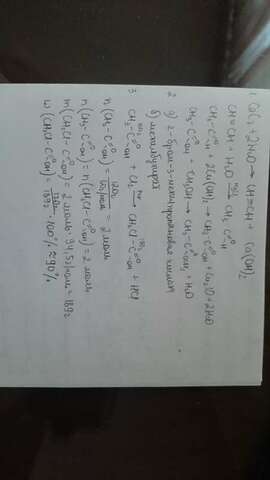 1 CaC₂ + 2H₂O → CH≡CH + Ca(OH)₂
CH≡CH + H₂O → CH₃-C=O-H
CH₃-C=O-H + 2Cu(OH)₂ → CH₃-C=O-OH + Cu₂O + 2H₂O
CH₃-C=O-OH + CH₃OH → CH₃-C=O-OCH₃ + H₂O
2
а) 2-бром-3-метил
б) метилбутират
3
CH₃-C=O-OH + Cl₂ → CH₂Cl-C=O-OH + HCl
n(CH₃-C=O-OH) = 120г / 60г/моль = 2 моль
n(CH₃-C=O-OH) = n(CH₂Cl-C=O-OH) = 2 моль
m(CH₂Cl-C=O-OH) = 2 моль · 94,5 г/моль = 189г
w(CH₂Cl-C=O-OH) = 170г / 189г · 100% ≈ 90%